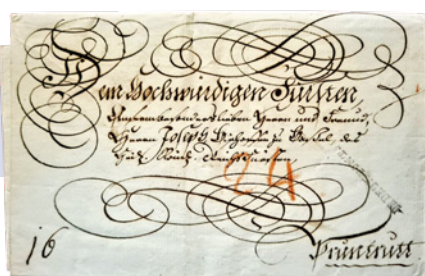 Dem Hochwürdigen Fürsten,
Herrn und
Herrn Joseph Bischoffen zu Basel, des
Reichs-Fürsten,
24
16
Pruntrutt